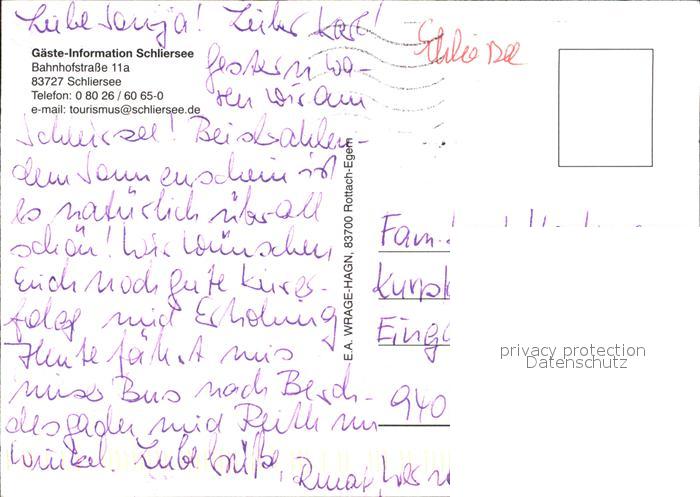 Liebe Sonja! Lieber Karl!
Schliersee
Gäste-Information Schliersee
Bahnhofstraße 11a
83727 Schliersee
Telefon: 0 80 26 / 60 65-0
e-mail: tourismus@schliersee.de
Gestern wa-
ren wir am
Schliersee! Bei strahlen-
dem Sonnenschein ist
es natürlich überall
schön! Wir wünschen
Euch noch gute Kurer-
folge und Erholung
Heute fährt uns
unser Bus nach Berch-
desgaden und Reit im
Winkel. Liebe Grüße,
E.A. WRAGE-HAGN, 83700 Rottach-Egern
Fam.
Kurpl
Einga
940
privacy protection
Datenschutz